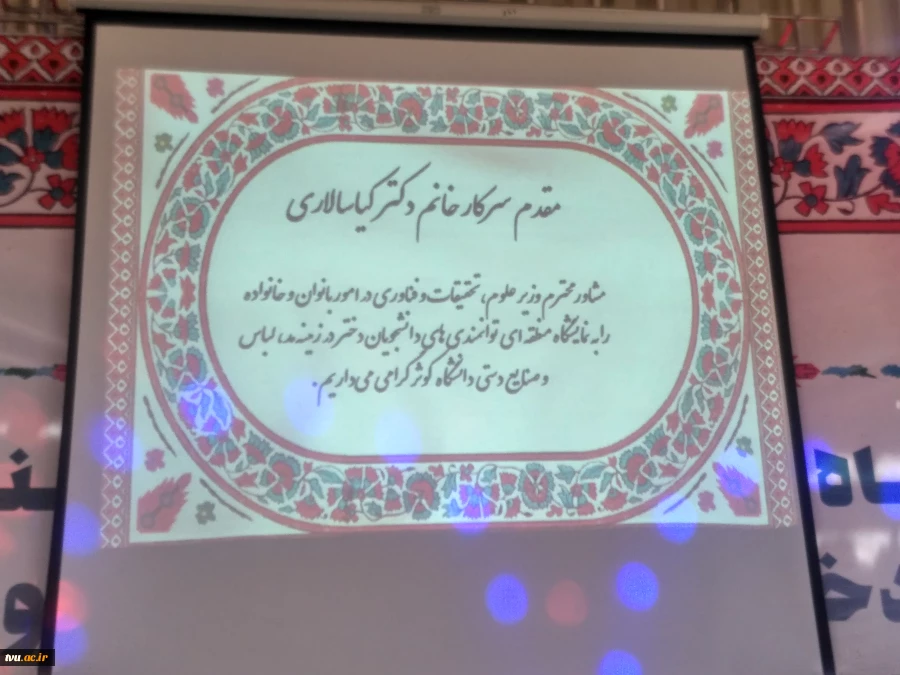 مقدم سرکار خانم دکتر کیاسالاری
مشاور محترم وزیر علوم، تحقیقات و فناوری در امور بانوان و خانواده
را به نمایشگاه منطقه ای توانمندی های دانشجویان دختر در زمینه مد، لباس
و صنایع دستی دانشگاه کوثر گرامی می داریم.
tvu.ac.ir